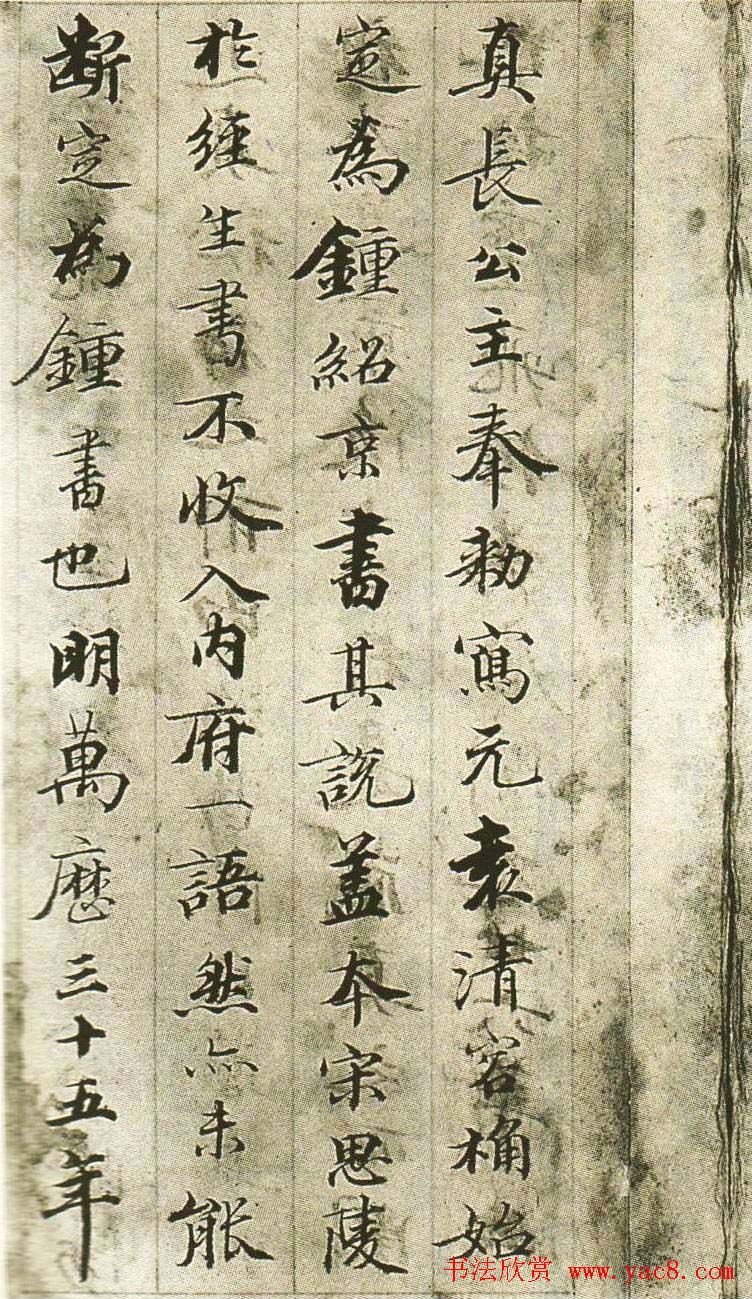 真長公主奉勑寫元袁清容桷始
定為鍾紹京書其説蓋本宋思陵
於經生書不收入内府一語然亦未能
斷定為鍾書也明萬曆三十五年
书法欣赏 www.yac8.com